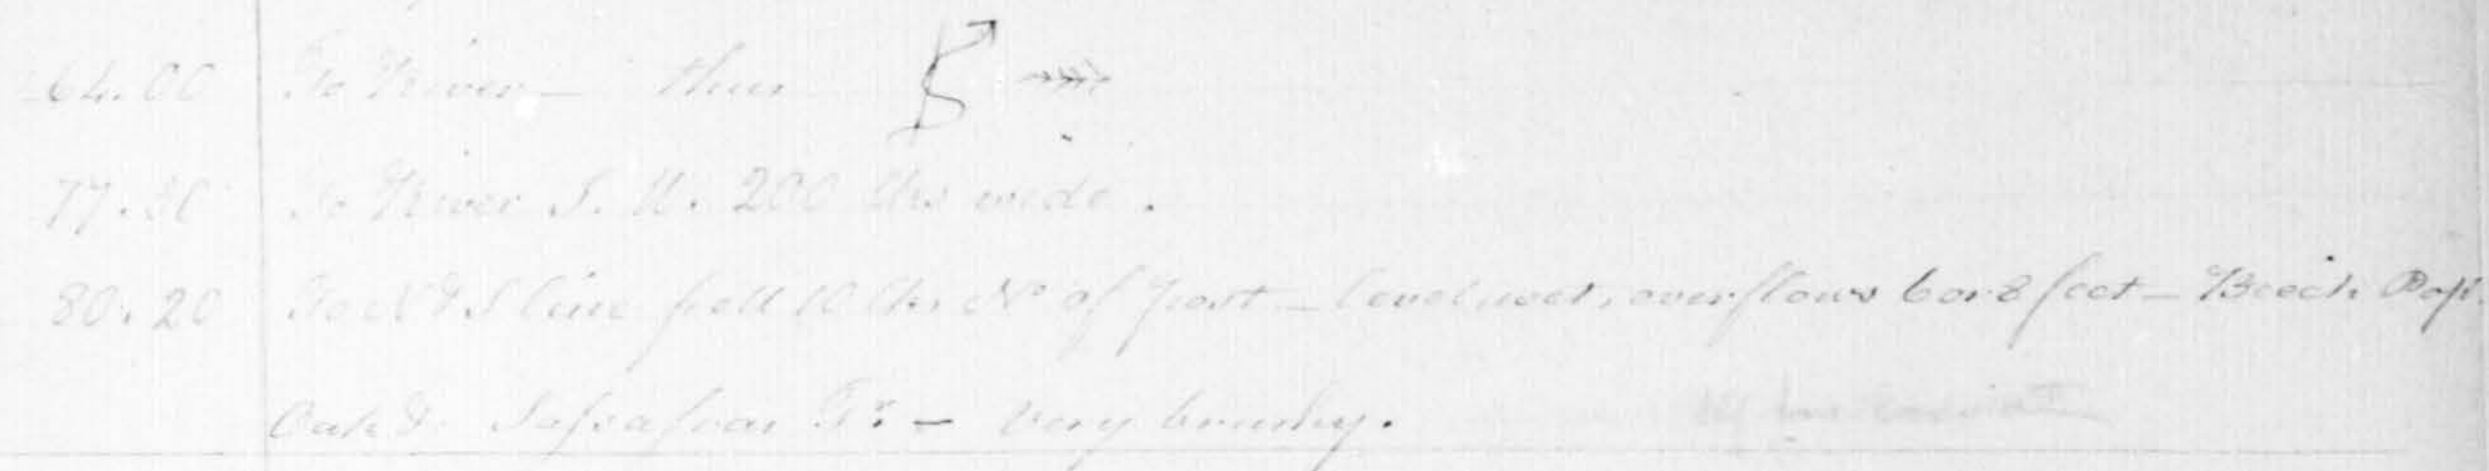 64.00 To River — thus
77.30 To River S. W. 200 lks wide.
80.20 To N & S line fell 10 lks N of post — level, wet, overflows 6 or 8 feet — Beech Pop
Oak & Sassafras — very brushy.